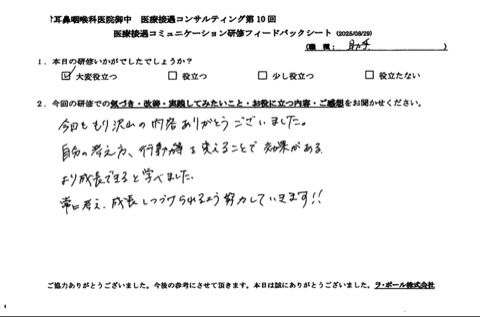 耳鼻咽喉科医院御中　医療接遇コンサルティング第10回
医療接遇コミュニケーション研修フィードバックシート (2025/08/29)
(職種： 助手 )
1．本日の研修いかがでしたでしょうか？
☑大変役立つ　□役立つ　□少し役立つ　□役立たない
2．今回の研修での気づき・改善・実践してみたいこと・お役に立つ内容・ご感想をお聞かせください。
今回ももり沢山の内容ありがとうございました。
自分の考え方、行動等を変えることで効果がある
より成長できると学べました。
常に考え、成長しつづけられるよう努力していきます!!
ご協力ありがとうございました。今後の参考にさせて頂きます。本日は誠にありがとうございました。ラ・ポール株式会社